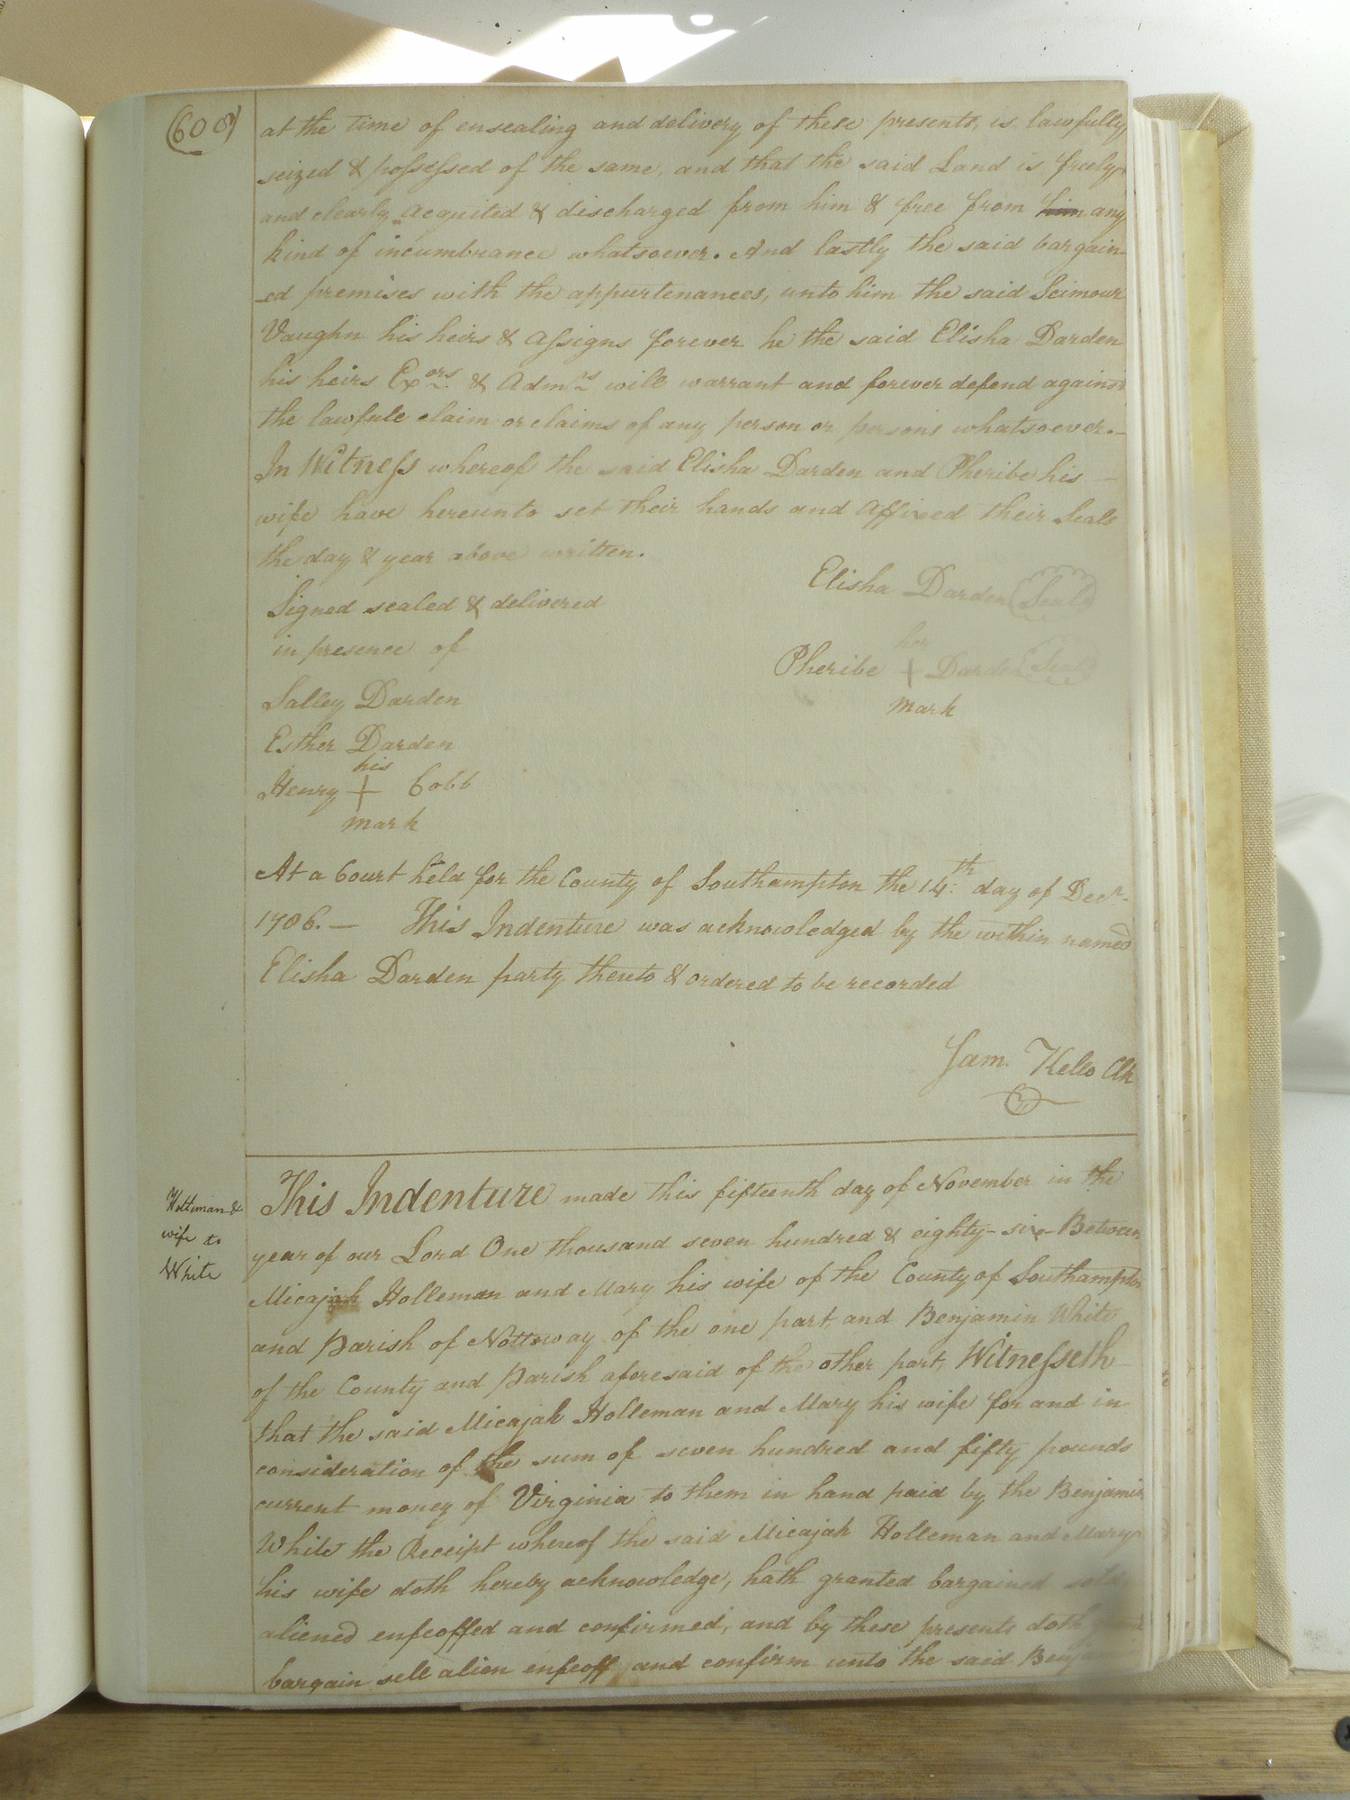 (608)
at the time of ensealing and delivery of these presents, is lawfully
seized & possessed of the same, and that the said Land is freely
and clearly acquited & discharged from him & free from him any
kind of incumbrance whatsoever. And lastly the said bargain-
-ed premises with the appurtenances, unto him the said Seimour
Vaughn his heirs & assigns forever he the said Elisha Darden
his heirs Exors. & Admrs will warrant and forever defend against
the lawfull claim or claims of any person or persons whatsoever.-
In Witness whereof the said Elisha Darden and Pheribe his -
wife have hereunto set their hands and affixed their Seals
the day & year above written.
Elisha Darden (Seal)
Signed sealed & delivered
in presence of
her
Pheribe + Darden (Seal)
mark
Salley Darden
Esther Darden
his
Henry + Cobb
mark
At a Court held for the County of Southampton the 14th day of Decr.
1786. — This Indenture was acknowledged by the within named
Elisha Darden party thereto & ordered to be recorded
Sam. Kello Clk
Holleman &
wife to
White
This Indenture made this fifteenth day of November in the
year of our Lord One thousand seven hundred & eighty-six Between
Micajah Holleman and Mary his wife of the County of Southampton
and Parish of Nottoway of the one part, and Benjamin White
of the County and Parish aforesaid of the other part, Witnesseth
that the said Micajah Holleman and Mary his wife for and in
consideration of the sum of seven hundred and fifty pounds
current money of Virginia to them in hand paid by the Benjamin
White the Receipt whereof the said Micajah Holleman and Mary
his wife doth hereby acknowledge, hath granted bargained sold
aliened enfeoffed and confirmed, and by these presents doth
bargain sell alien enfeoff and confirm unto the said